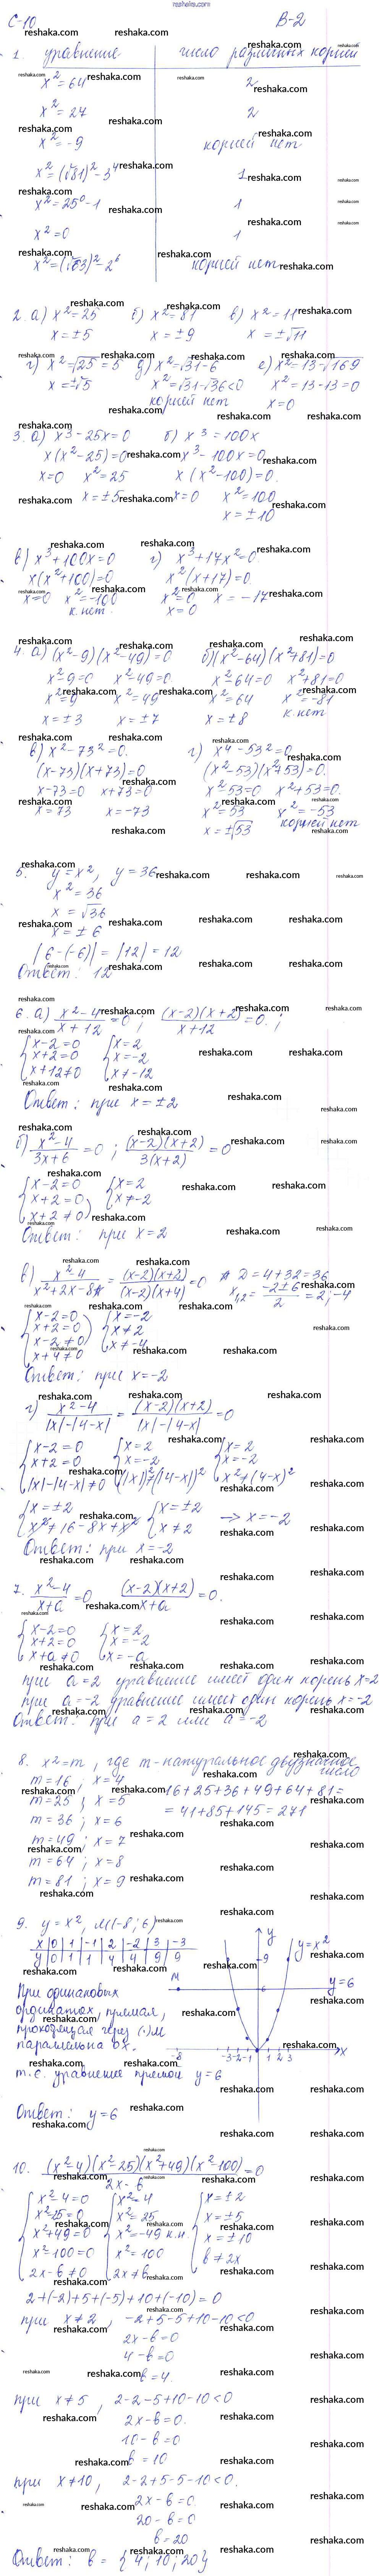 reshaka.com
С-10 В-2
1. уравнение число различных корней
x² = 64 2
x² = 27 2
x² = -9 корней нет
x² = (√81)² - 3⁴ 1
x² = 25⁰ - 1 1
x² = 0 1
x² = (√63)² - 2⁶ корней нет
2. а) x² = 25 б) x² = 81 в) x² = 11
x = ±5 x = ±9 x = ±√11
г) x² = √25 = 5 д) x² = √31 - 6 е) x² = 13 - √169
x = ±√5 x² = √31 - √36 < 0 x² = 13 - 13 = 0
корней нет x = 0
3. а) x³ - 25x = 0 б) x³ = 100x
x(x² - 25) = 0 x³ - 100x = 0
x = 0 x² = 25 x(x² - 100) = 0
x = ±5 x = 0 x² = 100
x = ±10
в) x³ + 100x = 0 г) x³ + 17x² = 0
x(x² + 100) = 0 x²(x + 17) = 0
x = 0 x² = -100 x² = 0 x = -17
к. нет x = 0
4. а) (x² - 9)(x² - 49) = 0 б) (x² - 64)(x² + 81) = 0
x² - 9 = 0 x² - 49 = 0 x² - 64 = 0 x² + 81 = 0
x² = 9 x² = 49 x² = 64 x² = -81
x = ±3 x = ±7 x = ±8 к. нет
в) x² - 73² = 0 г) x⁴ - 53² = 0
(x - 73)(x + 73) = 0 (x² - 53)(x² + 53) = 0
x - 73 = 0 x + 73 = 0 x² - 53 = 0 x² + 53 = 0
x = 73 x = -73 x² = 53 x² = -53
x = ±√53 корней нет
5. y = x², y = 36
x² = 36
x = √36
x = ±6
|6 - (-6)| = |12| = 12
Ответ: 12
6. а) (x² - 4)/(x + 12) = 0 ; (x-2)(x+2)/(x+12) = 0 ;
{x - 2 = 0 {x = 2
x + 2 = 0 x = -2
x + 12 ≠ 0 x ≠ -12
Ответ: при x = ±2
б) (x² - 4)/(3x + 6) = 0 ; (x-2)(x+2)/3(x+2) = 0
{x - 2 = 0 {x = 2
x + 2 = 0 x ≠ -2
x + 2 ≠ 0
Ответ: при x = 2
в) (x² - 4)/(x² + 2x - 8) = (x-2)(x+2)/(x-2)(x+4) = 0 D = 4 + 32 = 36
x₁,₂ = (-2 ± 6)/2 = 2; -4
{x - 2 = 0 {x = -2
x + 2 = 0 x ≠ 2
x - 2 ≠ 0 x ≠ -4
x + 4 ≠ 0
Ответ: при x = -2
г) (x² - 4)/(|x| - |4 - x|) = (x-2)(x+2)/(|x| - |4 - x|) = 0
{x - 2 = 0 {x = 2 {x = 2
x + 2 = 0 x = -2 x = -2
|x| - |4 - x| ≠ 0 (|x|)² ≠ (|4 - x|)² x² ≠ (4 - x)²
{x = ±2 {x = ±2 → x = -2
x² ≠ 16 - 8x + x² x ≠ 2
Ответ: при x = -2
7. (x² - 4)/(x + a) = 0 (x-2)(x+2)/(x+a) = 0.
{x - 2 = 0 {x = 2
x + 2 = 0 x = -2
x + a ≠ 0 x = -a
при a = 2 уравнение имеет один корень x = 2
при a = -2 уравнение имеет один корень x = -2
Ответ: при a = 2 или a = -2
8. x² = m, где m - натуральное двузначное число
m = 16, x = 4 16 + 25 + 36 + 49 + 64 + 81 =
m = 25; x = 5 = 41 + 85 + 145 = 271
m = 36; x = 6
m = 49; x = 7
m = 64; x = 8
m = 81; x = 9
9. y = x², M(-8; 6)
x | 0 | 1 | -1 | 2 | -2 | 3 | -3
y | 0 | 1 | 1 | 4 | 4 | 9 | 9
y y = x² 9 M 6 y = 6 -8 -3 -2 -1 1 2 3 x
При одинаковых
ординатах, прямая,
проходящая через (·)M
параллельна OX.
т.е. уравнение прямой y = 6
Ответ: y = 6
10. (x² - 4)(x² - 25)(x² + 49)(x² - 100)/(2x - b) = 0
{x² - 4 = 0 {x² = 4 {x = ±2
x² - 25 = 0 x² = 25 x = ±5
x² + 49 = 0 x² = -49 к.н. x = ±10
x² - 100 = 0 x² = 100 b ≠ 2x
2x - b ≠ 0 2x ≠ b
2 + (-2) + 5 + (-5) + 10 + (-10) = 0
при x ≠ 2, -2 + 5 - 5 + 10 - 10 < 0
2x - b = 0
4 - b = 0
b = 4.
при x ≠ 5, 2 - 2 - 5 + 10 - 10 < 0
2x - b = 0.
10 - b = 0
b = 10
при x ≠ 10, 2 - 2 + 5 - 5 - 10 < 0.
2x - b = 0
20 - b = 0
b = 20
Ответ: b = {4; 10; 20}